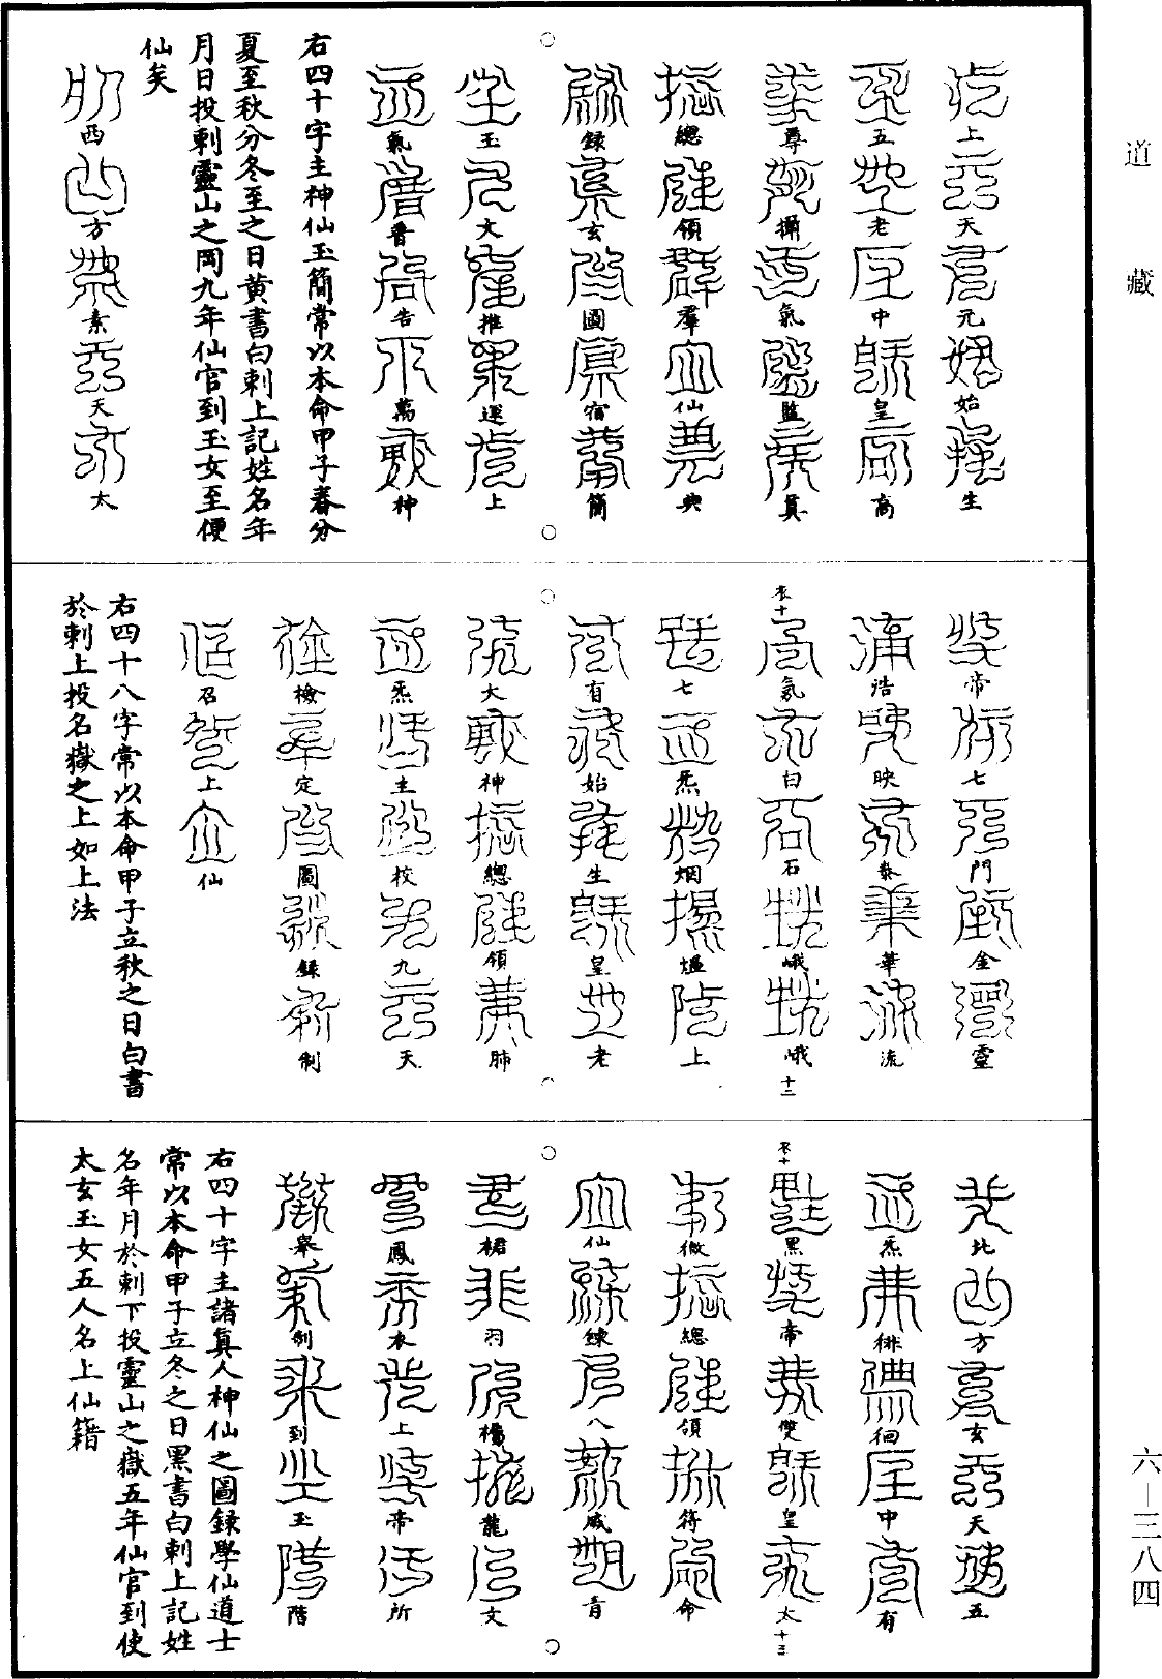 道藏
上天元始生
五老中皇高
尊攝氣監真
總領羣仙典
録玄圖宿簡
玉文推運上
氣普告萬神
右四十字主神仙玉簡常以本命甲子春分
夏至秋分冬至之日黄書白刺上記姓名年
月日投刺靈山之岡九年仙官到玉女至便
仙矣
西方素天太
帝七門金靈
浩映泰華流
氣白石峨峨十二
七炁烟煴上
有始生皇老
大神總領肺
炁主校九天
檢定圖録制
召上仙
右四十八字常以本命甲子立秋之日白書
於刺上投名嶽之上如上法
北方玄天五
炁徘徊中有
黑帝雙皇太十三
微總領符命
仙練八威青
裙羽橋龍文
鳳衣上帝所
舉制到玉階
右四十字主諸真人神仙之圖録學仙道士
常以本命甲子立冬之日黑書白刺上記姓
名年月於刺下投靈山之嶽五年仙官到使
太玄玉女五人名上仙籍
六—三八四